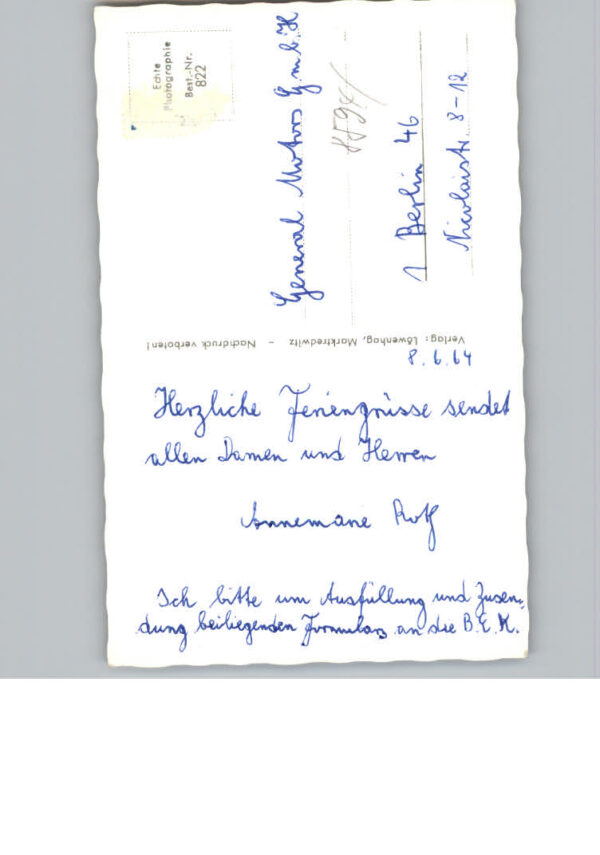 Echte
Photographie
Best.-Nr.
822
General Motors G.m.b.H
1 Berlin 46
Nicolaistr. 8-12
Verlag: Löwenhag, Marktredwitz - Nachdruck verboten!
8.6.64
Herzliche Feriengrüsse sendet
allen Damen und Herren
Annemarie
Ich bitte um Ausfüllung und Zusen-
dung beiliegenden Formulars an die B.E.K.